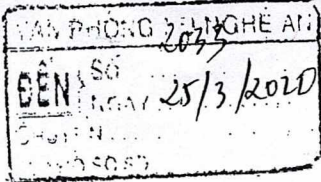 VĂN PHÒNG NGHỆ AN
ĐẾN
SỐ 2033
NGÀY 25/3/2020
CHUYỂN